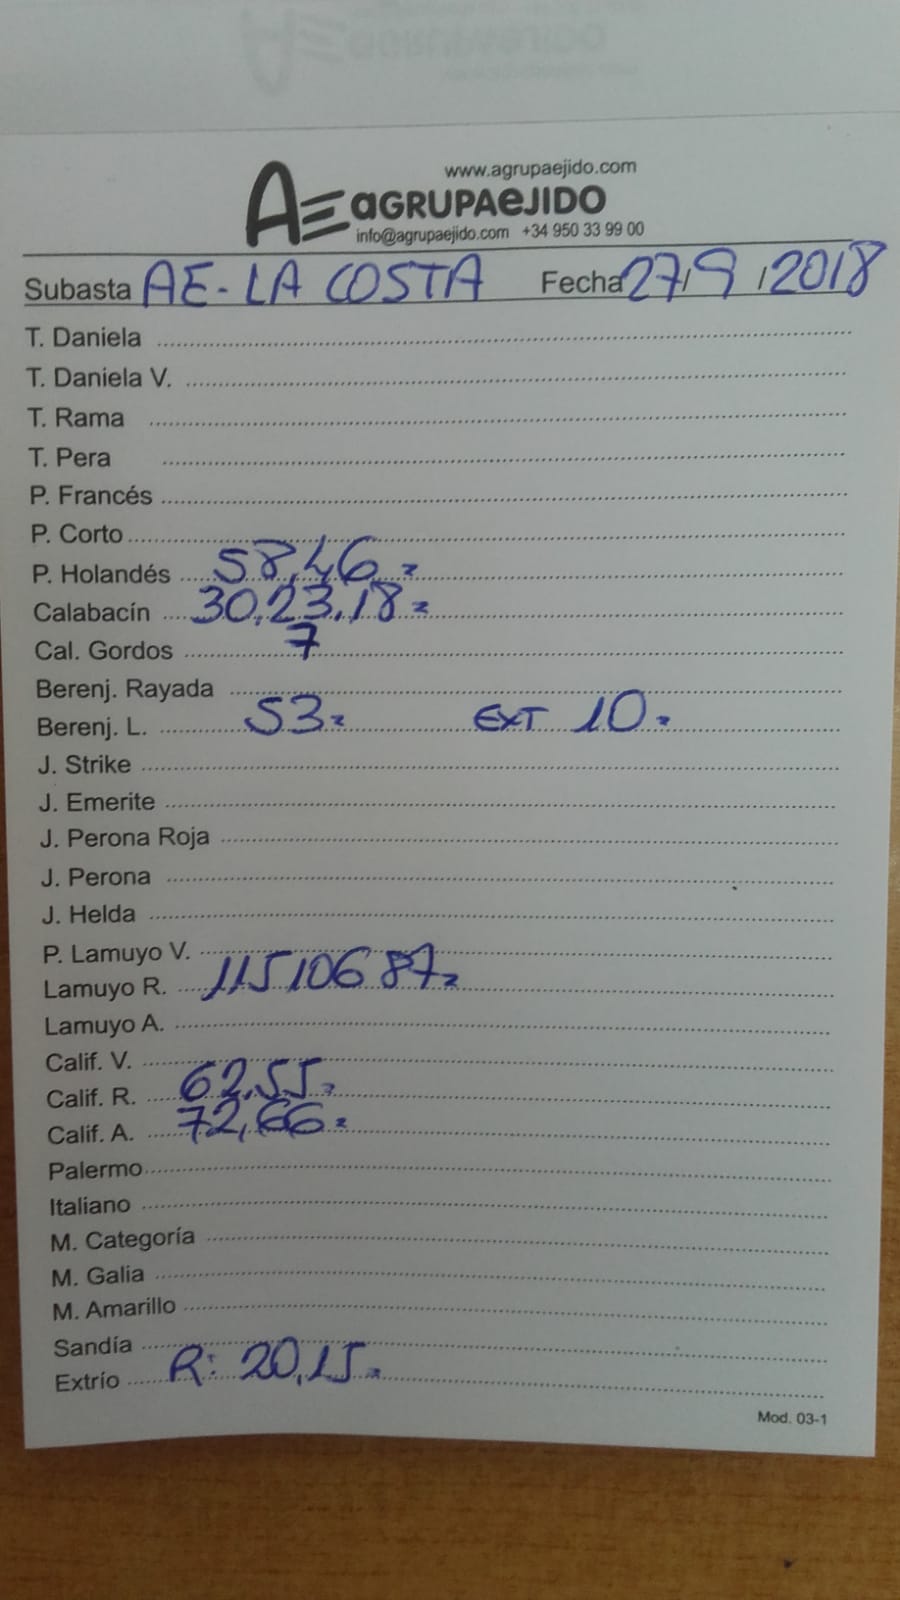 www.agrupaejido.com
AE aGRUPAeJIDO
info@agrupaejido.com +34 950 33 99 00
Subasta AE-LA COSTA Fecha 27/9/2018
T. Daniela
T. Daniela V.
T. Rama
T. Pera
P. Francés
P. Corto
P. Holandés 58,46=
Calabacín 30,23,18=
Cal. Gordos 7
Berenj. Rayada
Berenj. L. 53= EXT 10=
J. Strike
J. Emerite
J. Perona Roja
J. Perona
J. Helda
P. Lamuyo V.
Lamuyo R. 115 106 87=
Lamuyo A.
Calif. V.
Calif. R. 62,55=
Calif. A. 72,66=
Palermo
Italiano
M. Categoría
M. Galia
M. Amarillo
Sandía
Extrío R: 20,15=
Mod. 03-1